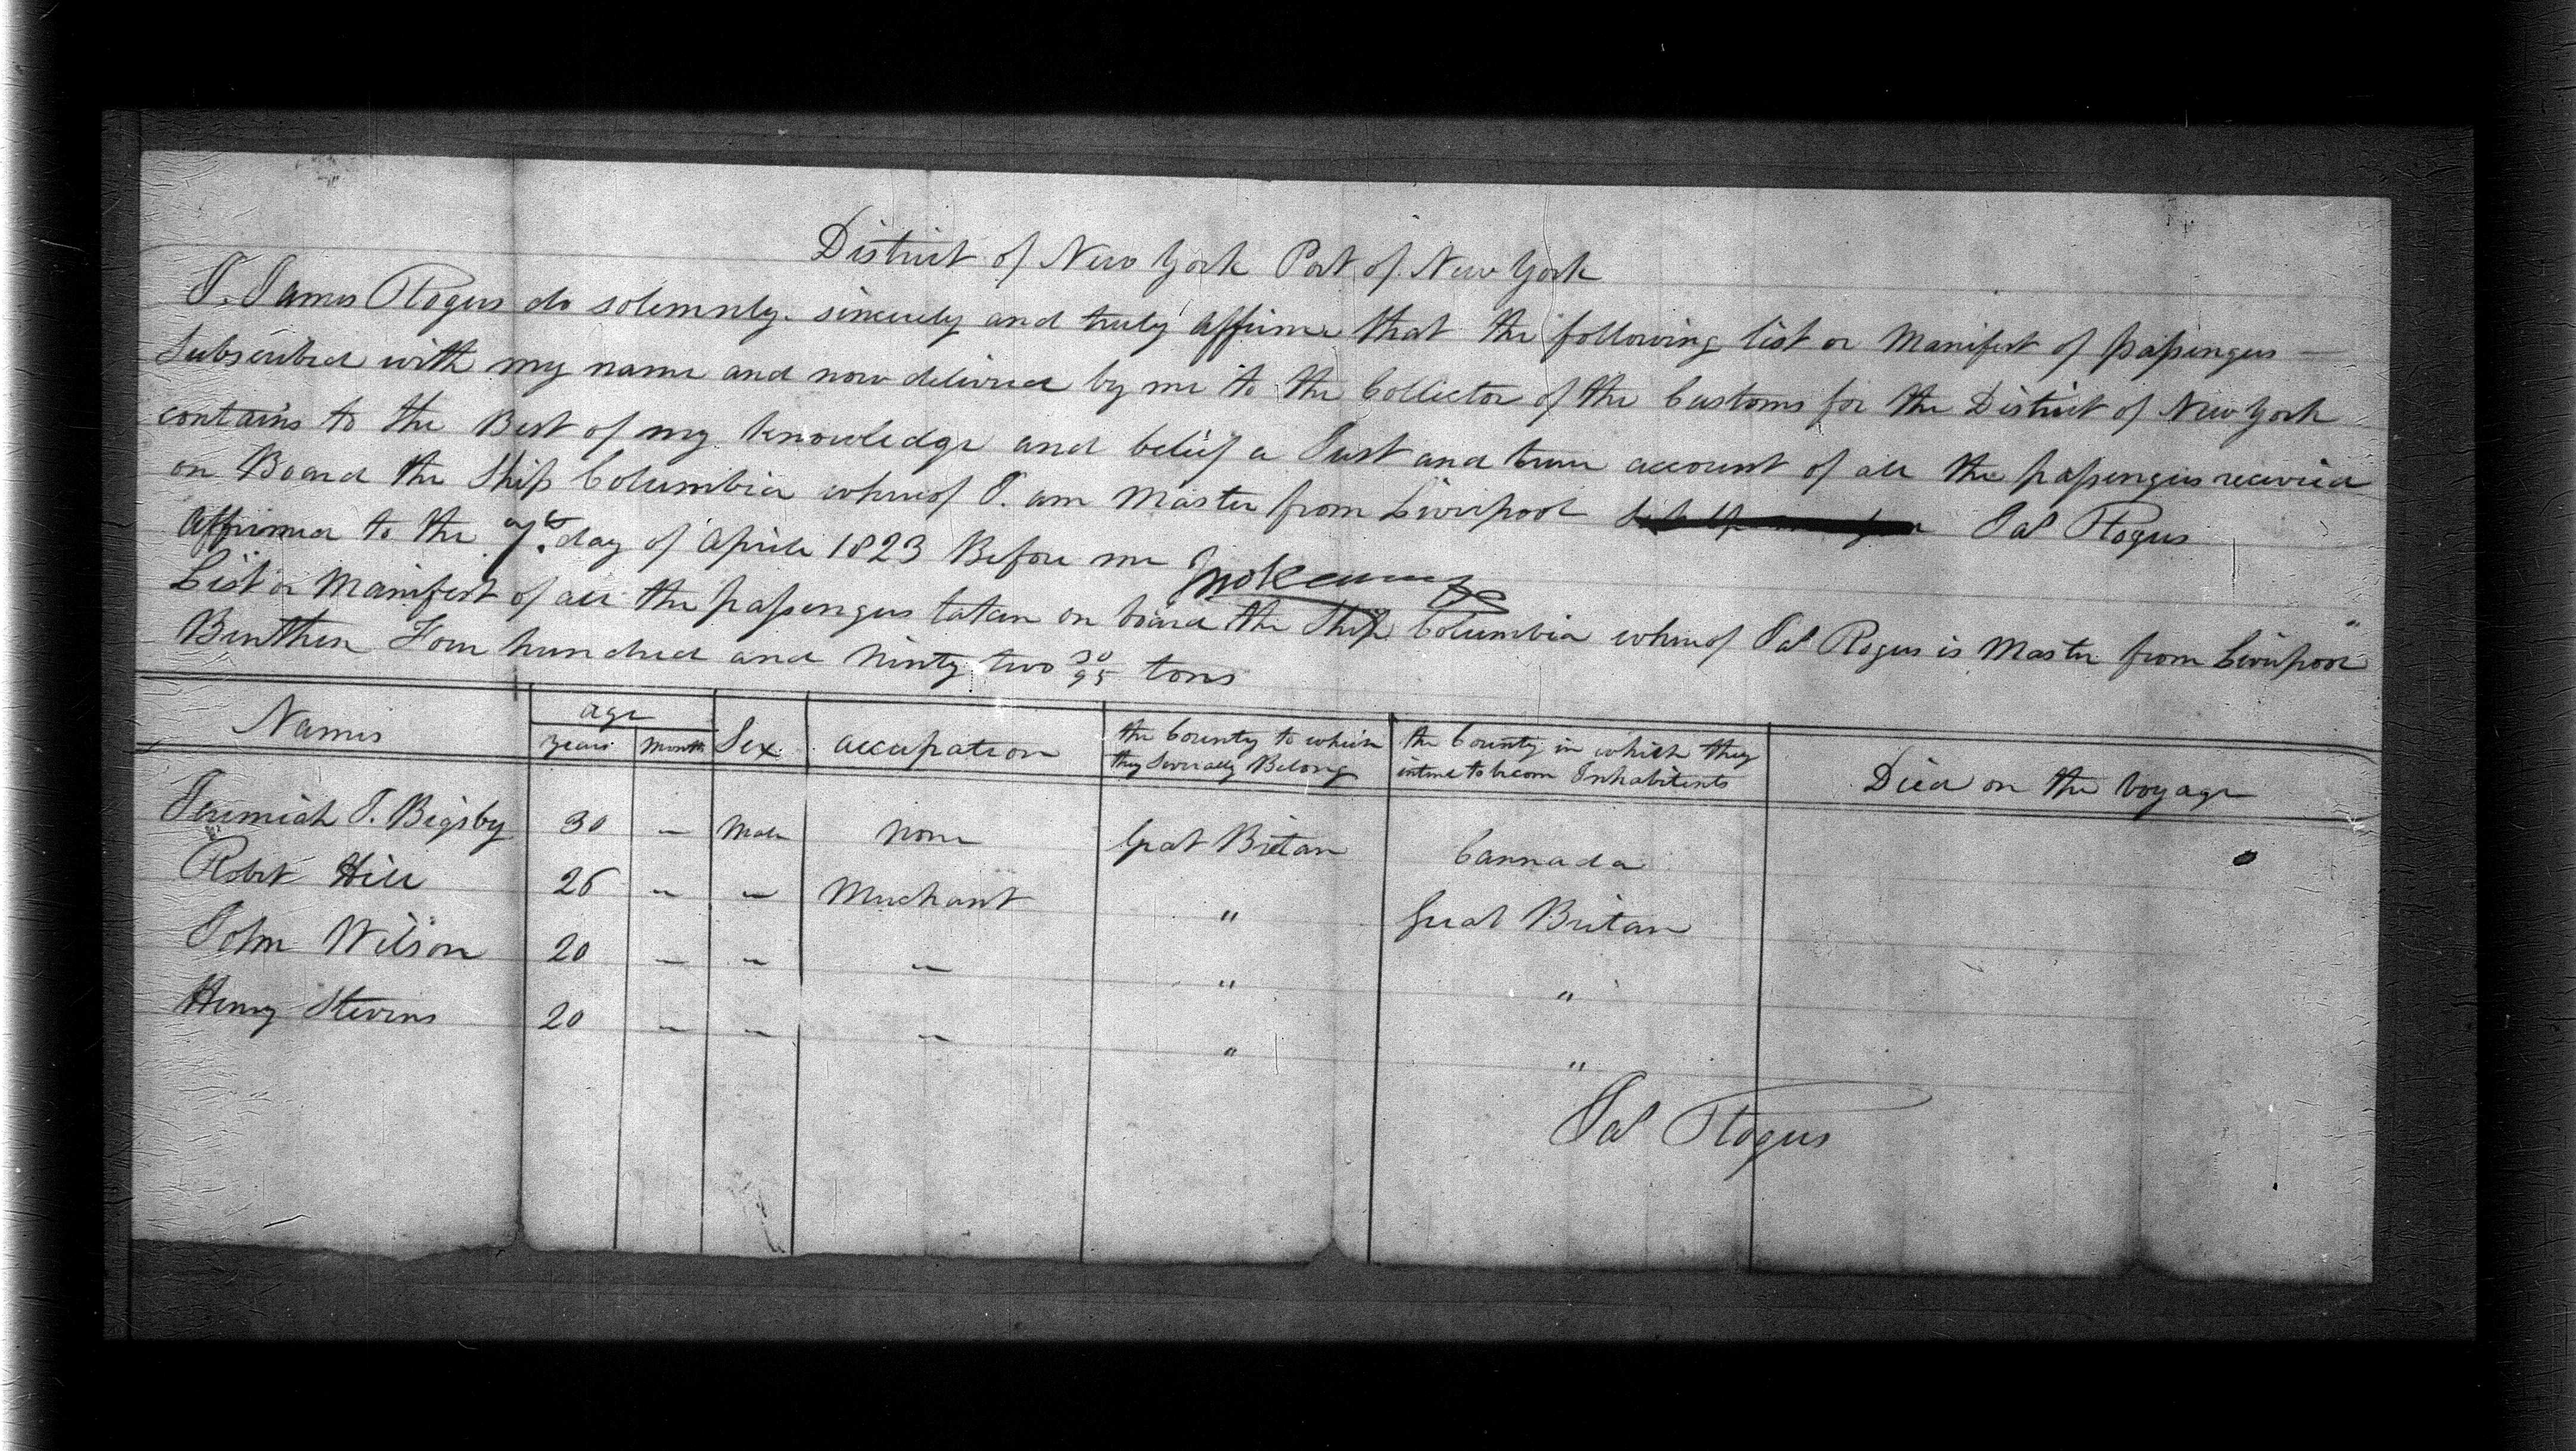 District of New York Port of New York
I. James Rogers do solemnly. sincerely and truly affirm that the following list or Manifest of passengers —
Subscribed with my name and now delivered by me to the Collector of the Customs for the District of New York
contains to the Best of my knowledge and belief a Just and true account of all the passengers received
on Board the Ship Columbia whereof I. am Master from Liverpool Jas Rogers
Affirmed to the 7th day of April 1823 Before me
List or Manifest of all the passengers taken on board the Ship Columbia whereof Jas Rogers is Master from Liverpool
Burthen Four hundred and Ninty two 30/95 tons
Names age years month Sex occupation the County to which they Severally Belong the County in which they intend to becom Inhabitents Died on the Voyage
Jeremiah J. Bigsby 30 — Male None Great Britan Cannada 0
Robt Hill 26 — — Merchant " Great Britan
John Wilson 20 — — — " "
Henry Stevens 20 — — — " "
Jas Rogers